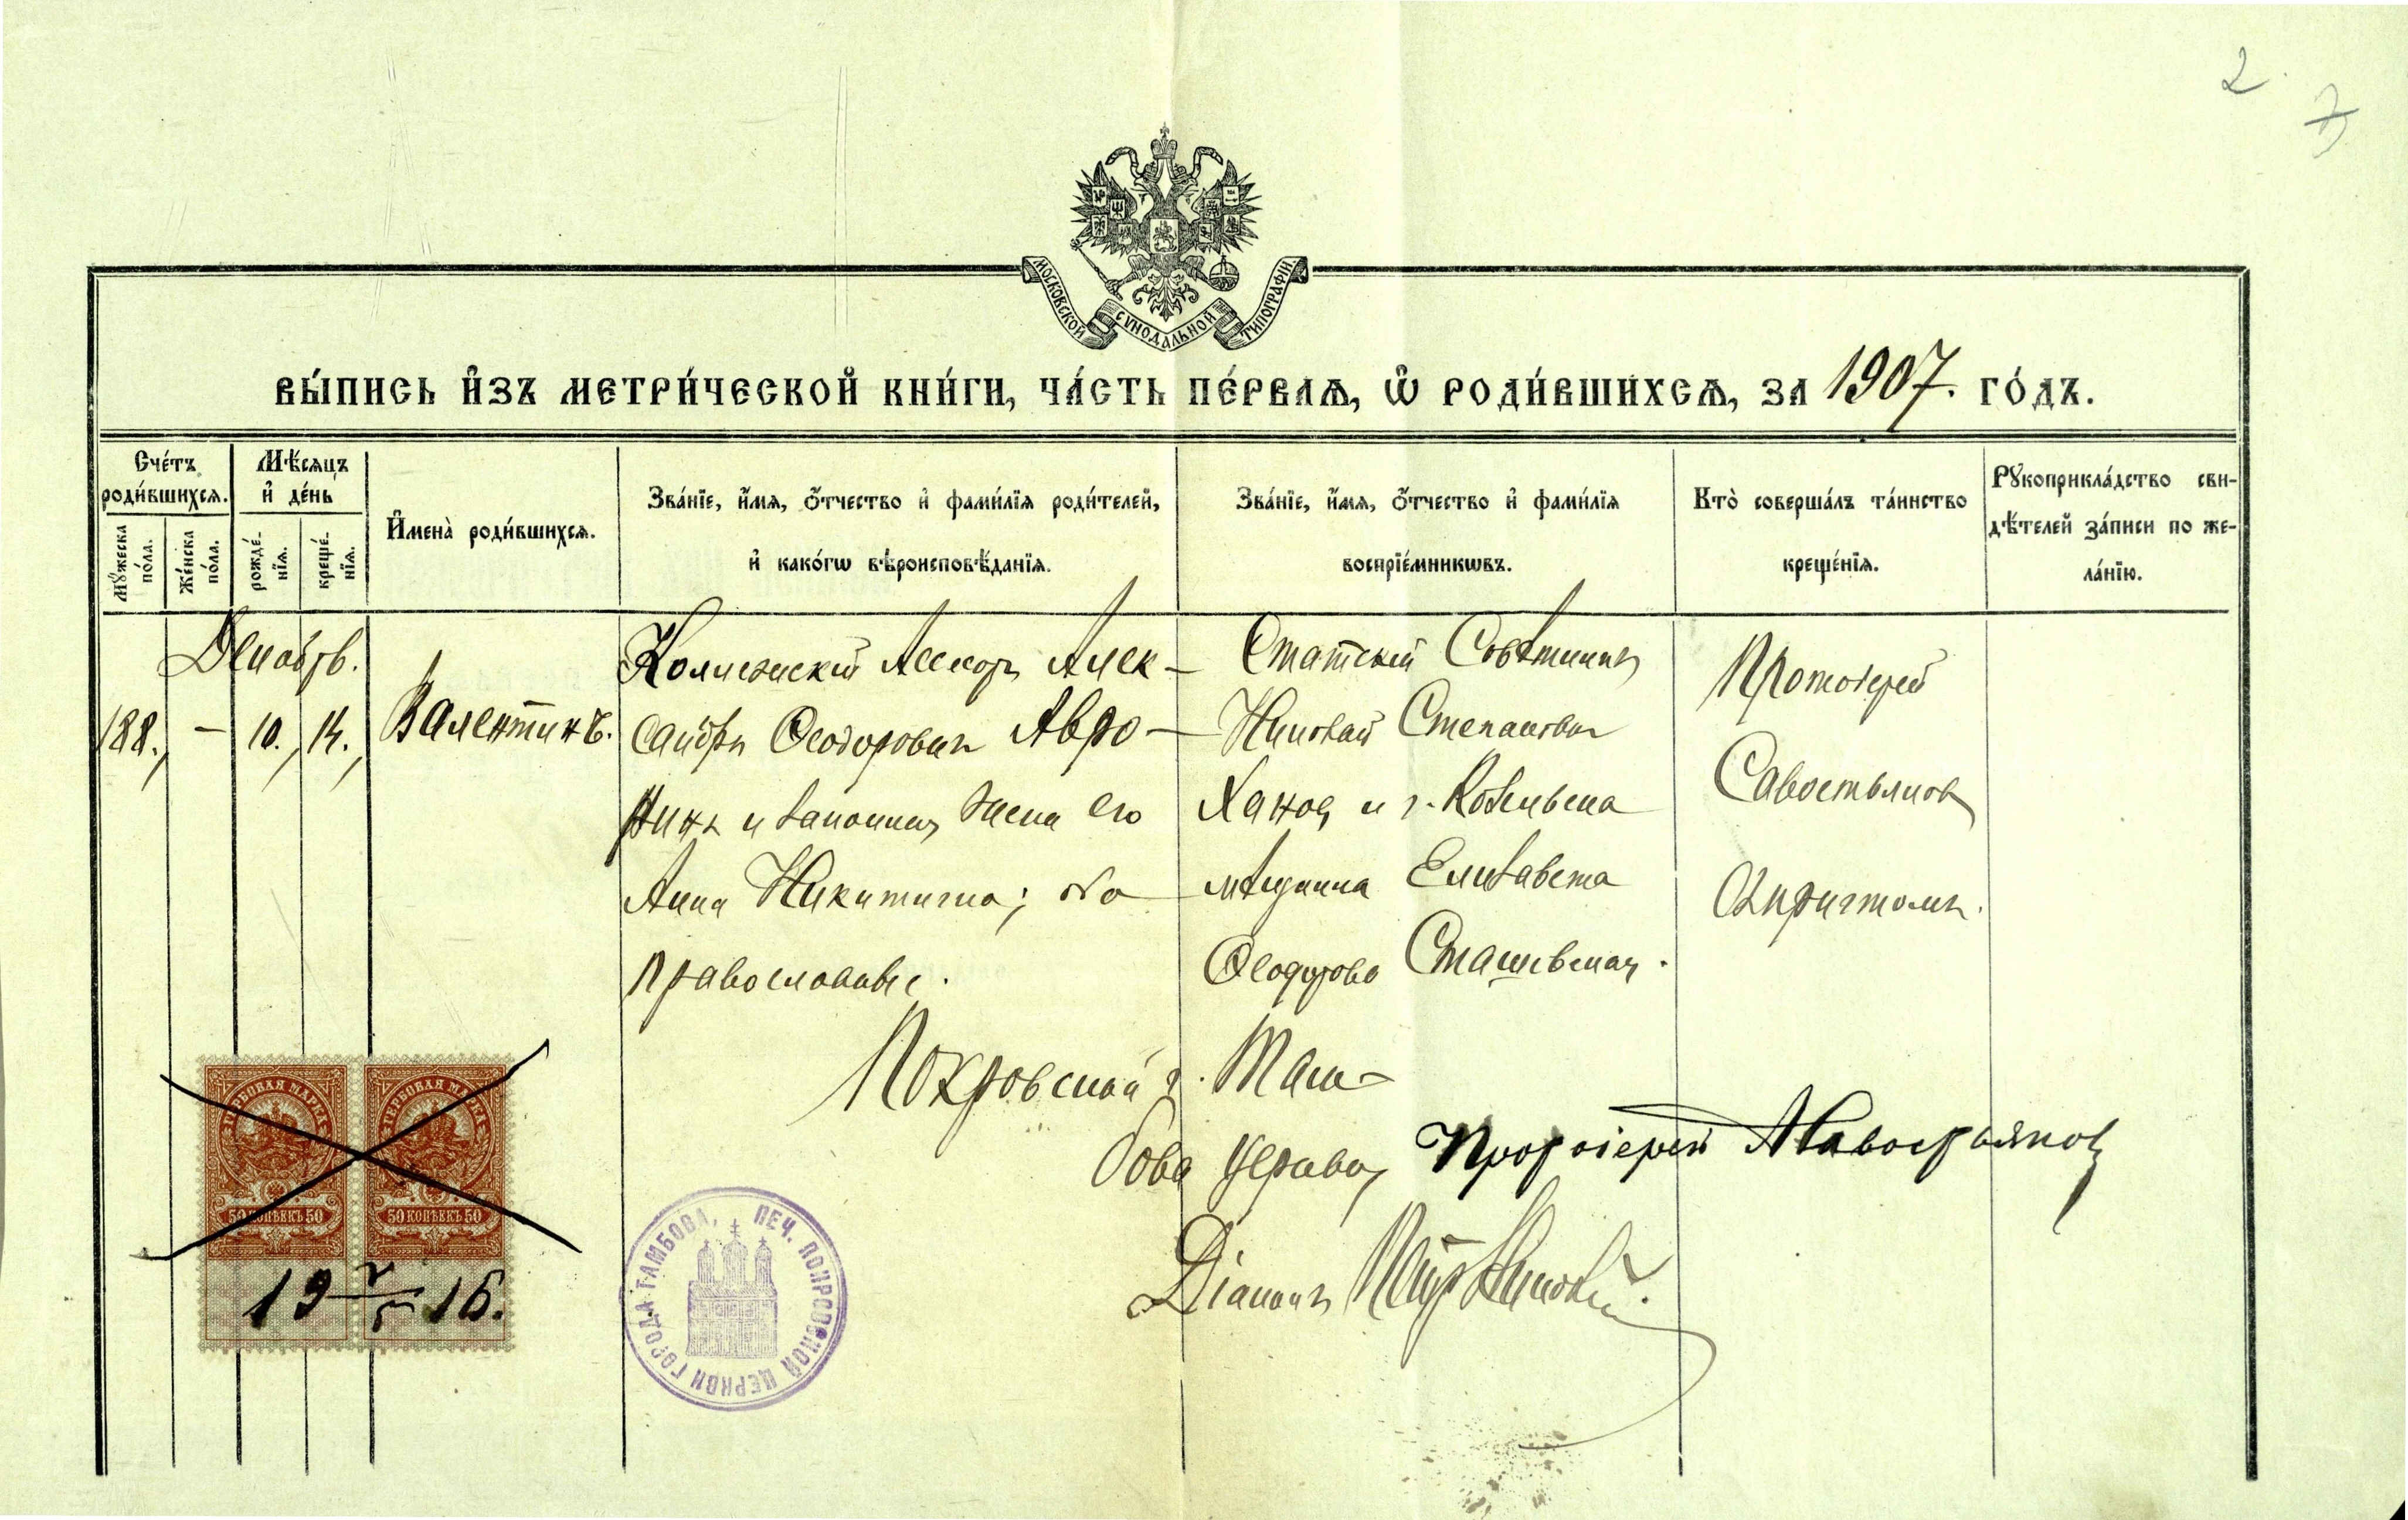 2.
7
МОСКОВСКОЙ СѴНОДАЛЬНОЙ ТИПОГРАФІИ.
ВЫ́ПИСЬ И҆ЗЪ МЕТРИ́ЧЕСКОЙ КНИ́ГИ, ЧА́СТЬ ПЕ́РВАѦ, Ѡ҆ РОДИ́ВШИХСѦ, ЗА 1907. ГО́ДЪ.
Сче́тъ роди́вшихсѧ.
Мꙋ́жеска по́ла.
Же́нска по́ла.
Мѣ́сѧцъ и҆ де́нь
рожде́-нїѧ.
креще́-нїѧ.
И҆мена̀ роди́вшихсѧ.
Зва́нїе, и҆́мѧ, ѻ҆́тчество и҆ фами́лїѧ роди́телей,
и҆ како́гѡ вѣроисповѣ́данїѧ.
Зва́нїе, и҆́мѧ, ѻ҆́тчество и҆ фами́лїѧ
воспрїе́мникѡвъ.
Кто̀ соверша́лъ та́инство
креще́нїѧ.
Рꙋкоприкла́дство сви-
дѣ́телей за́писи по же-
ла́нїю.
Декабрь.
188. - 10. 14. Валентинъ.
Коллежскій Ассесоръ Алек-
сандръ Ѳеодоровичъ Авро-
ринъ и законная жена его
Анна Никитична; оба
православные.
Статскій Совѣтникъ
Николай Степановичъ
Ханов и г. Козлова
мѣщанка Елизавета
Ѳеодорова Сташевская.
Протоіерей
Савостьяновъ
съ причтомъ.
Покровской г. Там-
бова церкви, Протоіерей А Савостьяновъ
Діаконъ
ГЕРБОВАЯ МАРКА
50 КОПѢЕКЪ 50
ГЕРБОВАЯ МАРКА
50 КОПѢЕКЪ 50
19 V/5 16.
ПЕЧ. ПОКРОВСКОЙ ЦЕРКВИ ГОРОДА ТАМБОВА,